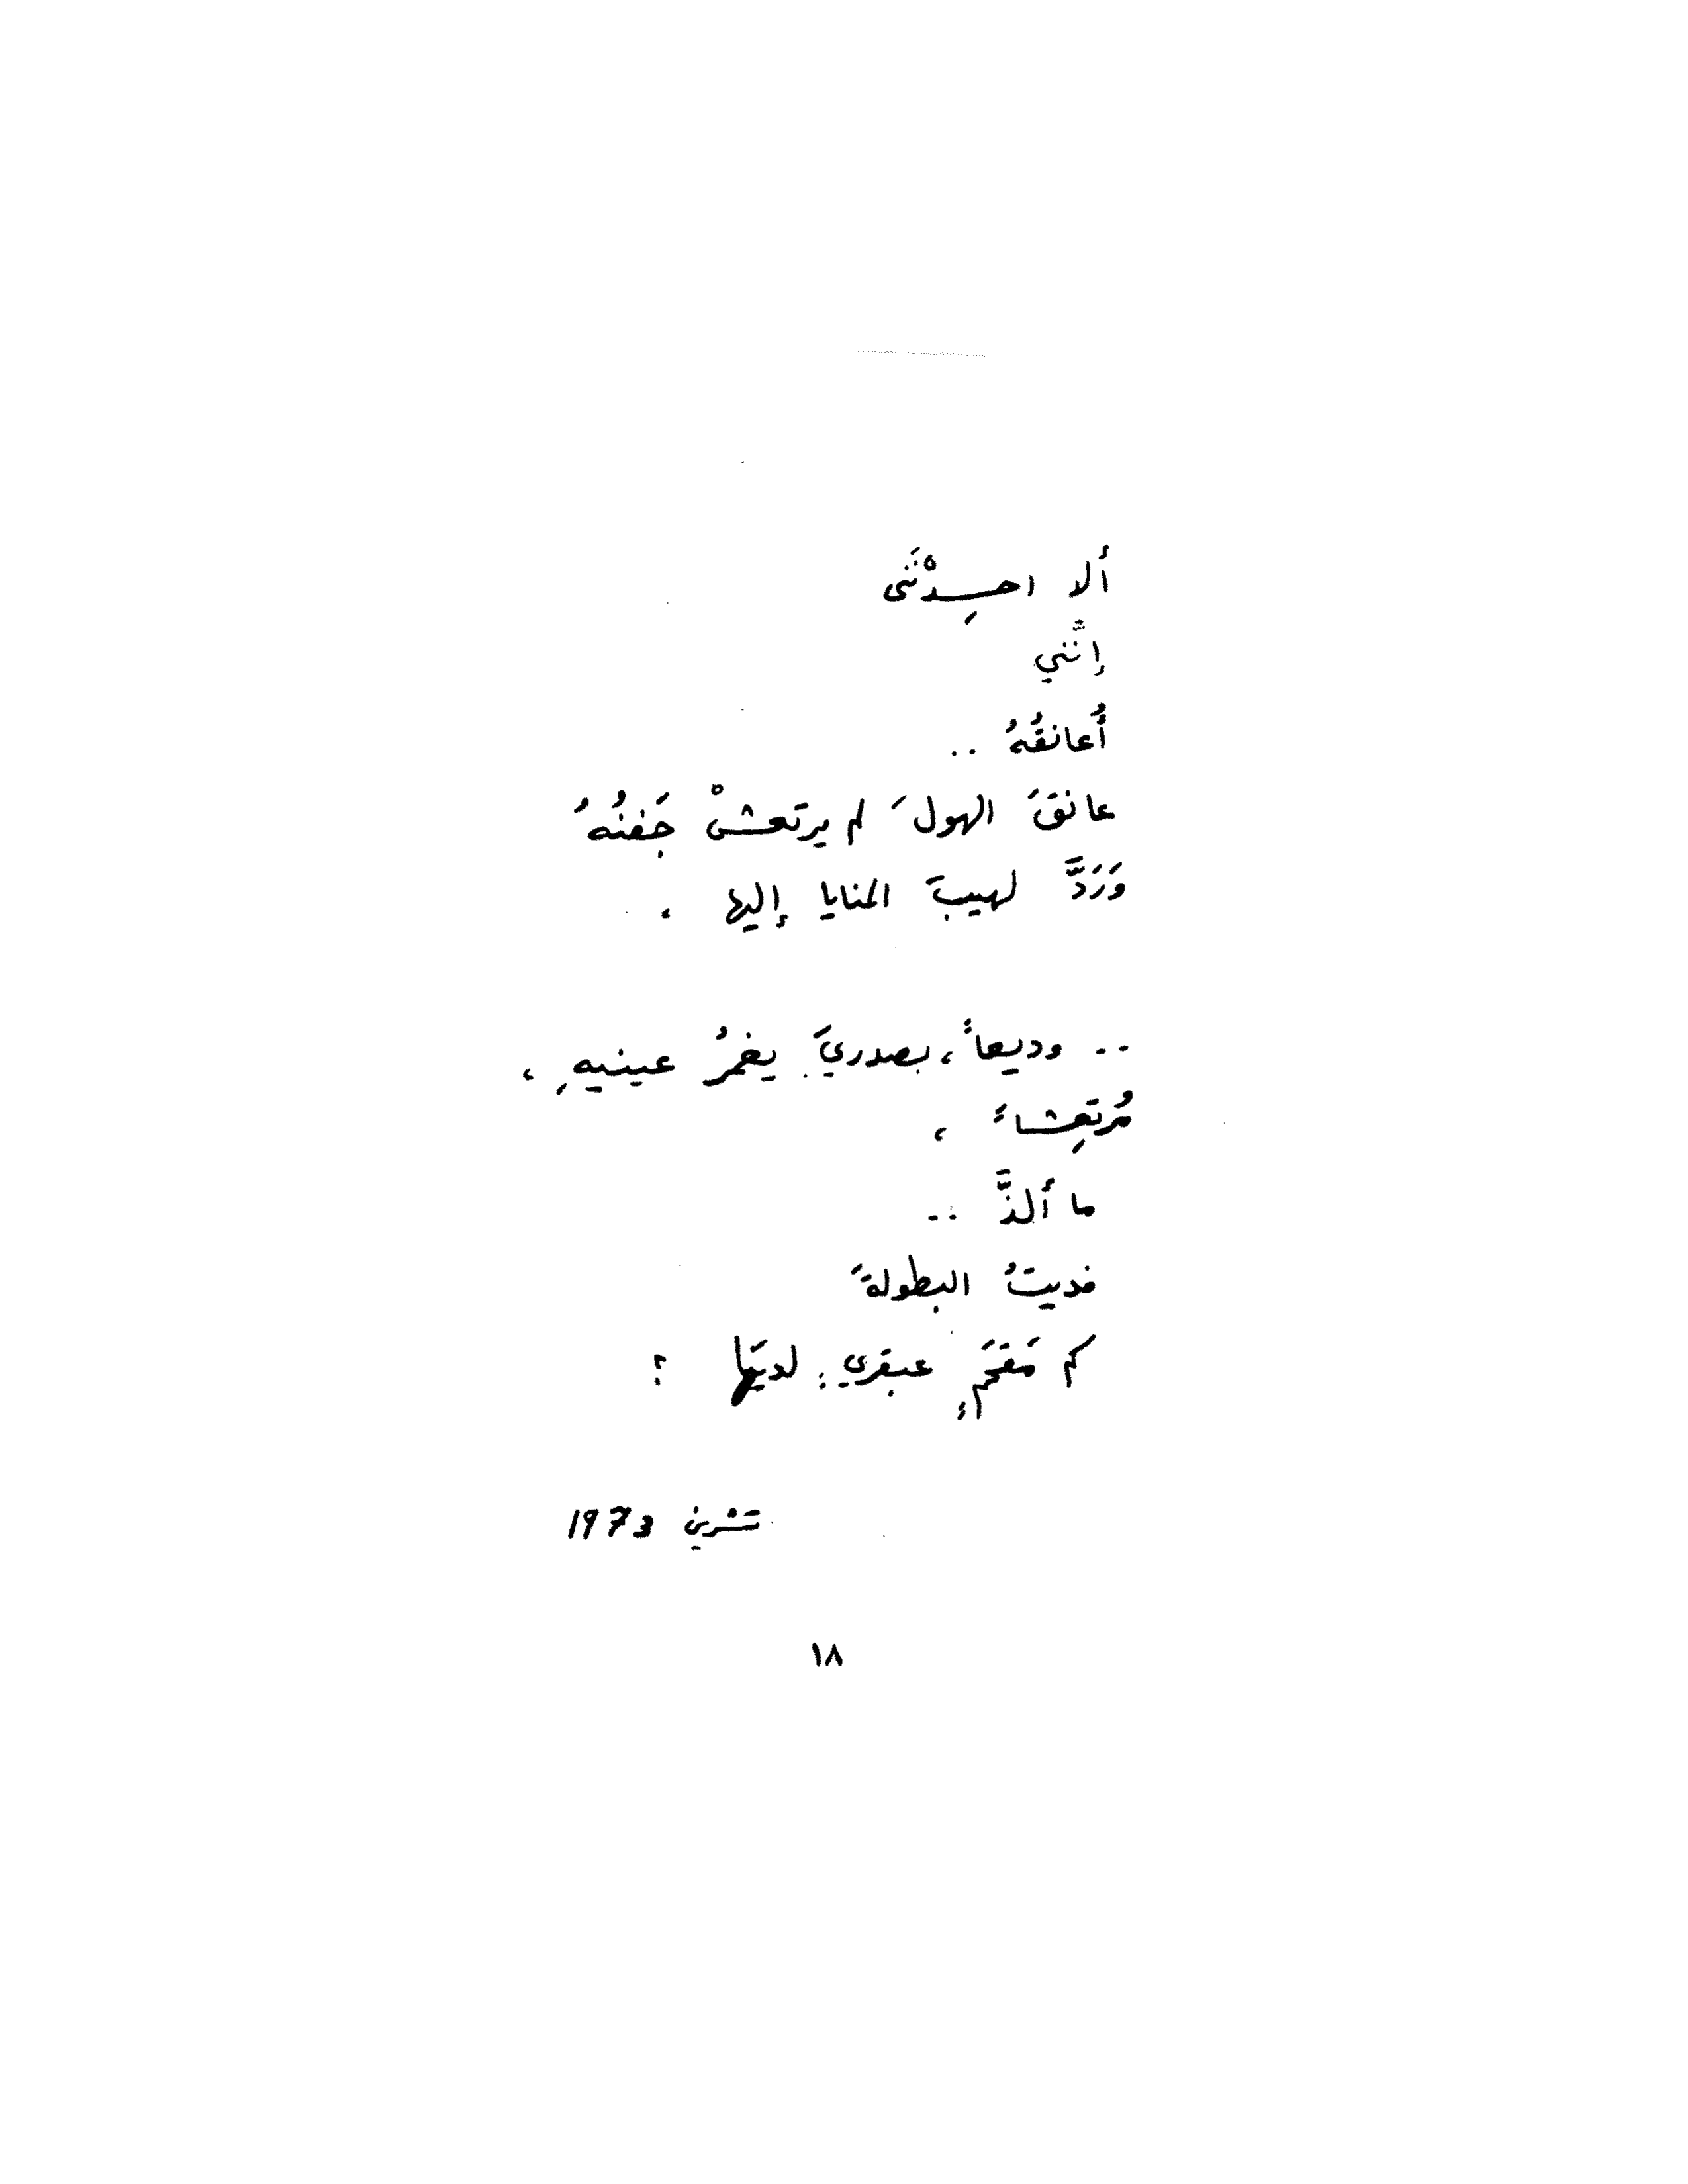 ألا احسِدْنَني
إنَّني
أُعانقُهُ ..
عانقَ الهولَ لم يرتعشْ جَفنُهُ
وَرَدَّ لهيبَ المنايا إليها ،
.. وديعاً ، بصدريَ يغمرُ عينيهِ ،
مُرتعِشاً ،
ما ألذَّ ..
فديتُ البطولةَ
كم مَقحَمٍ عبقريٍ لديَها ؟
تشرين 1973
١٨